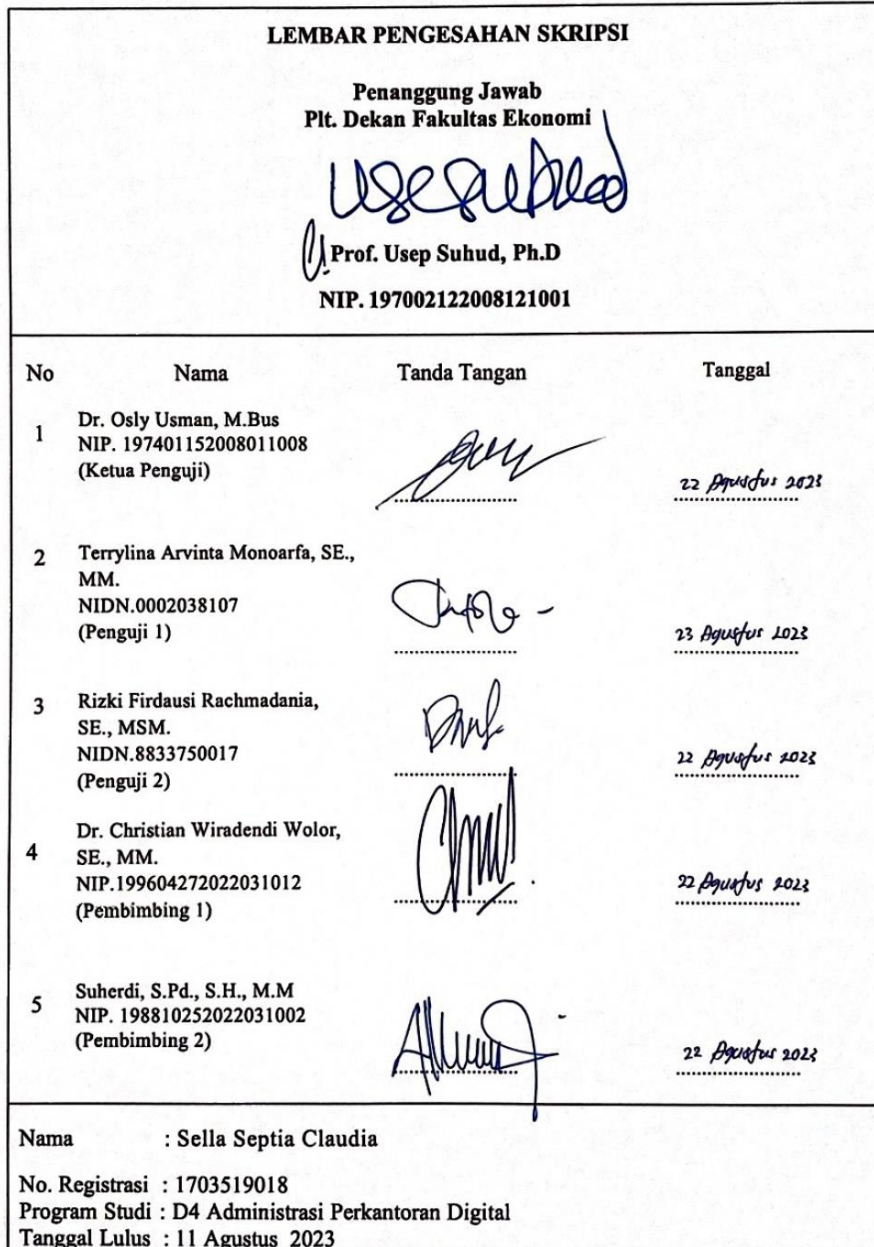 LEMBAR PENGESAHAN SKRIPSI
Penanggung Jawab
Plt. Dekan Fakultas Ekonomi
Prof. Usep Suhud, Ph.D
NIP. 197002122008121001
No Nama Tanda Tangan Tanggal
1 Dr. Osly Usman, M.Bus
NIP. 197401152008011008
(Ketua Penguji)
22 Agustus 2023
2 Terrylina Arvinta Monoarfa, SE.,
MM.
NIDN.0002038107
(Penguji 1)
23 Agustus 2023
3 Rizki Firdausi Rachmadania,
SE., MSM.
NIDN.8833750017
(Penguji 2)
22 Agustus 2023
4 Dr. Christian Wiradendi Wolor,
SE., MM.
NIP.199604272022031012
(Pembimbing 1)
22 Agustus 2023
5 Suherdi, S.Pd., S.H., M.M
NIP. 198810252022031002
(Pembimbing 2)
22 Agustus 2023
Nama : Sella Septia Claudia
No. Registrasi : 1703519018
Program Studi : D4 Administrasi Perkantoran Digital
Tanggal Lulus : 11 Agustus 2023